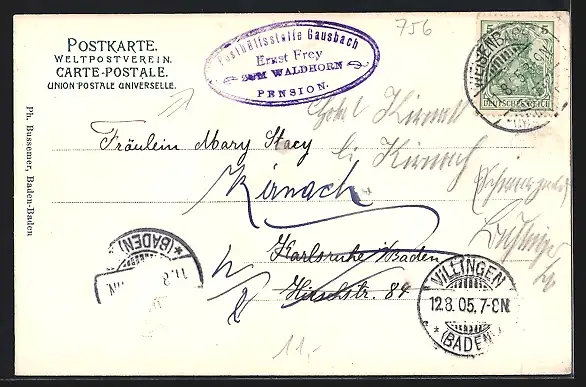 POSTKARTE.
WELTPOSTVEREIN.
CARTE-POSTALE.
UNION POSTALE UNIVERSELLE.
Posthülfsstelle Gausbach
Ernst Frey
ZUM WALDHORN
PENSION.
756
5 5
DEUTSCHES REICH
WEISENBACH
Hotel Kirnach
Fräulein Mary Stacy
bei Kirnach
Kirnach
Karlsruhe i/Baden
Hirschstr. 84
*(BADEN)*
11.8
VILLINGEN
12.8.05.7-8N.
*(BADEN)*
11,-
Ph. Bussemer, Baden-Baden